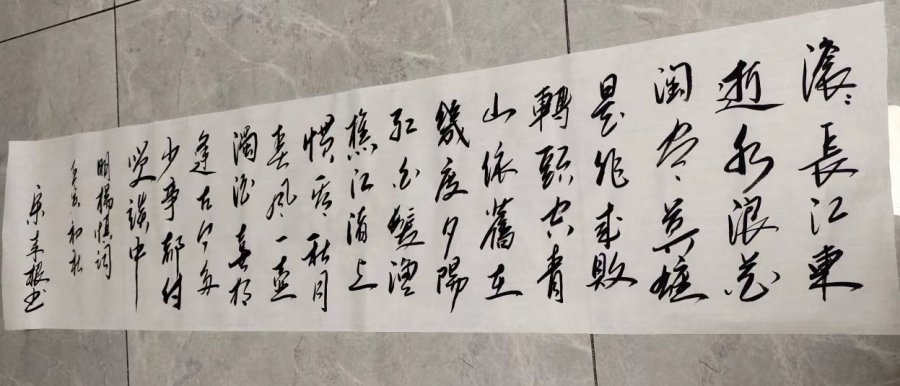 滾〻長江東
逝水浪花
淘尽英雄
是非成敗
轉頭空青
山依舊在
幾度夕陽
紅白髮漁
樵江渚上
惯看秋月
春风一壶
濁酒喜相
逢古今多
少事都付
笑談中
明楊慎词
初秋